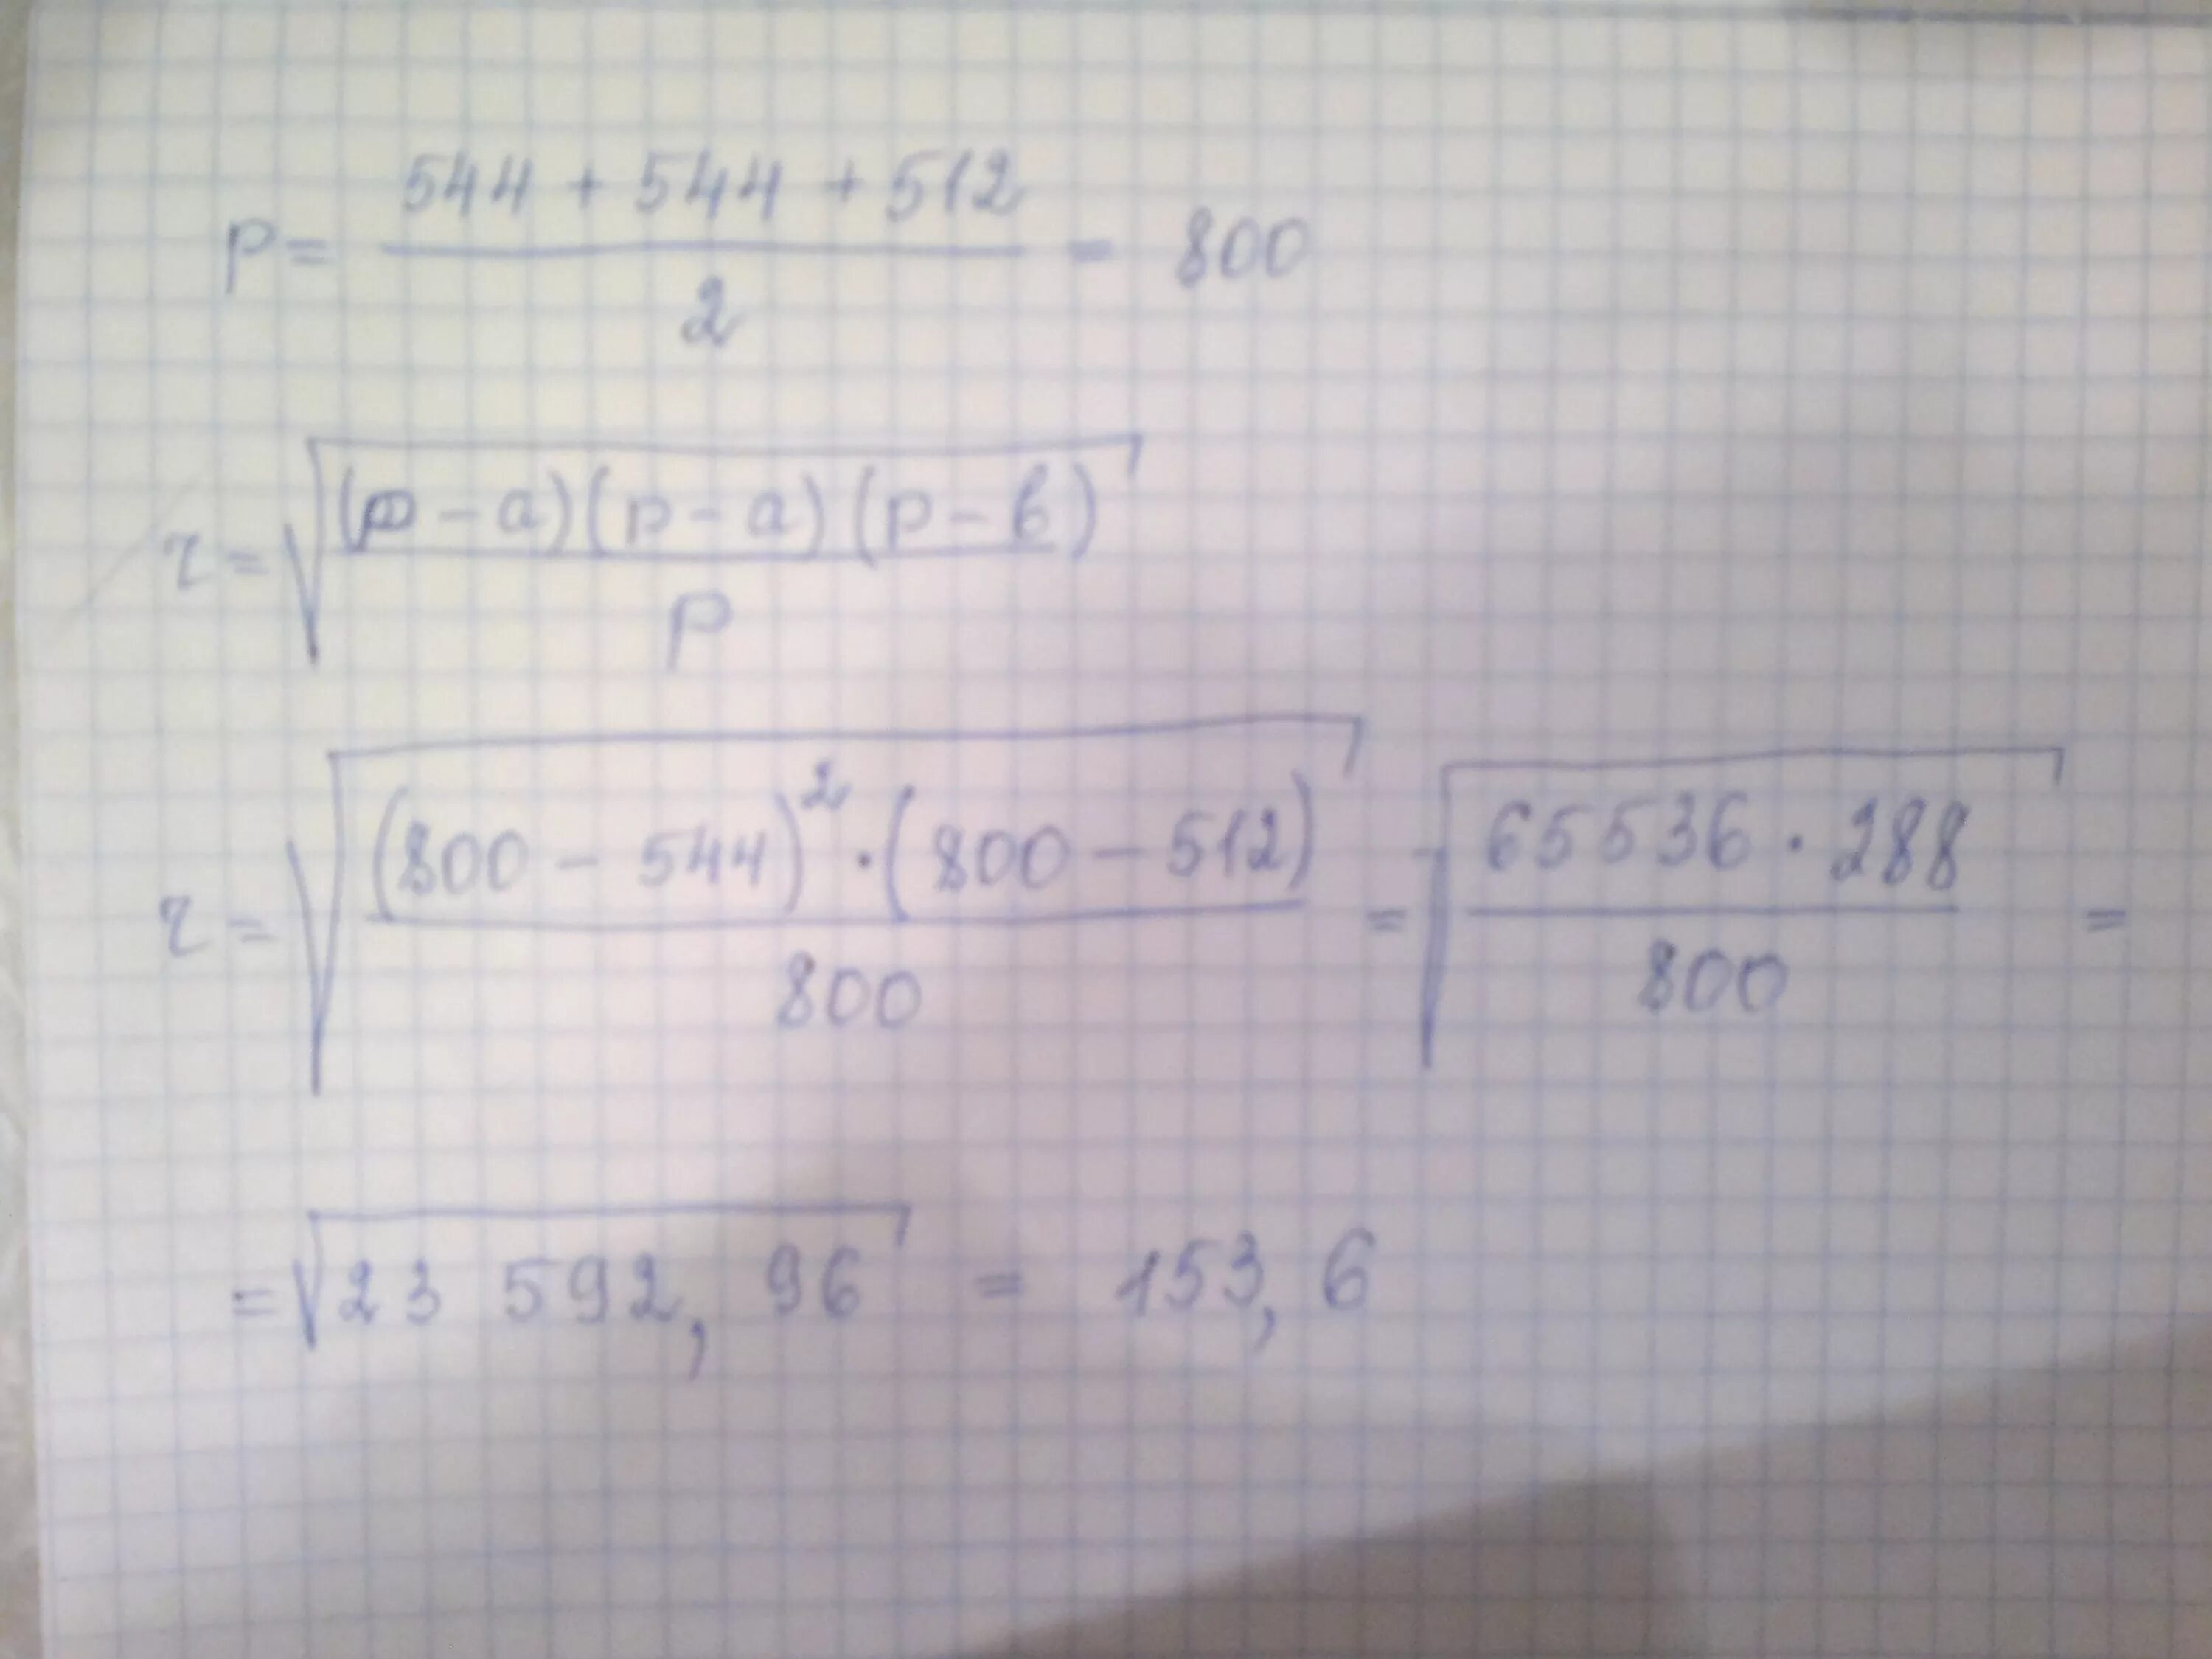 p = (544 + 544 + 512) / 2 = 800
r = √((p - a)(p - a)(p - b) / p)
r = √((800 - 544)² · (800 - 512) / 800) = √(65536 · 288 / 800) =
= √23 592, 96 = 153, 6